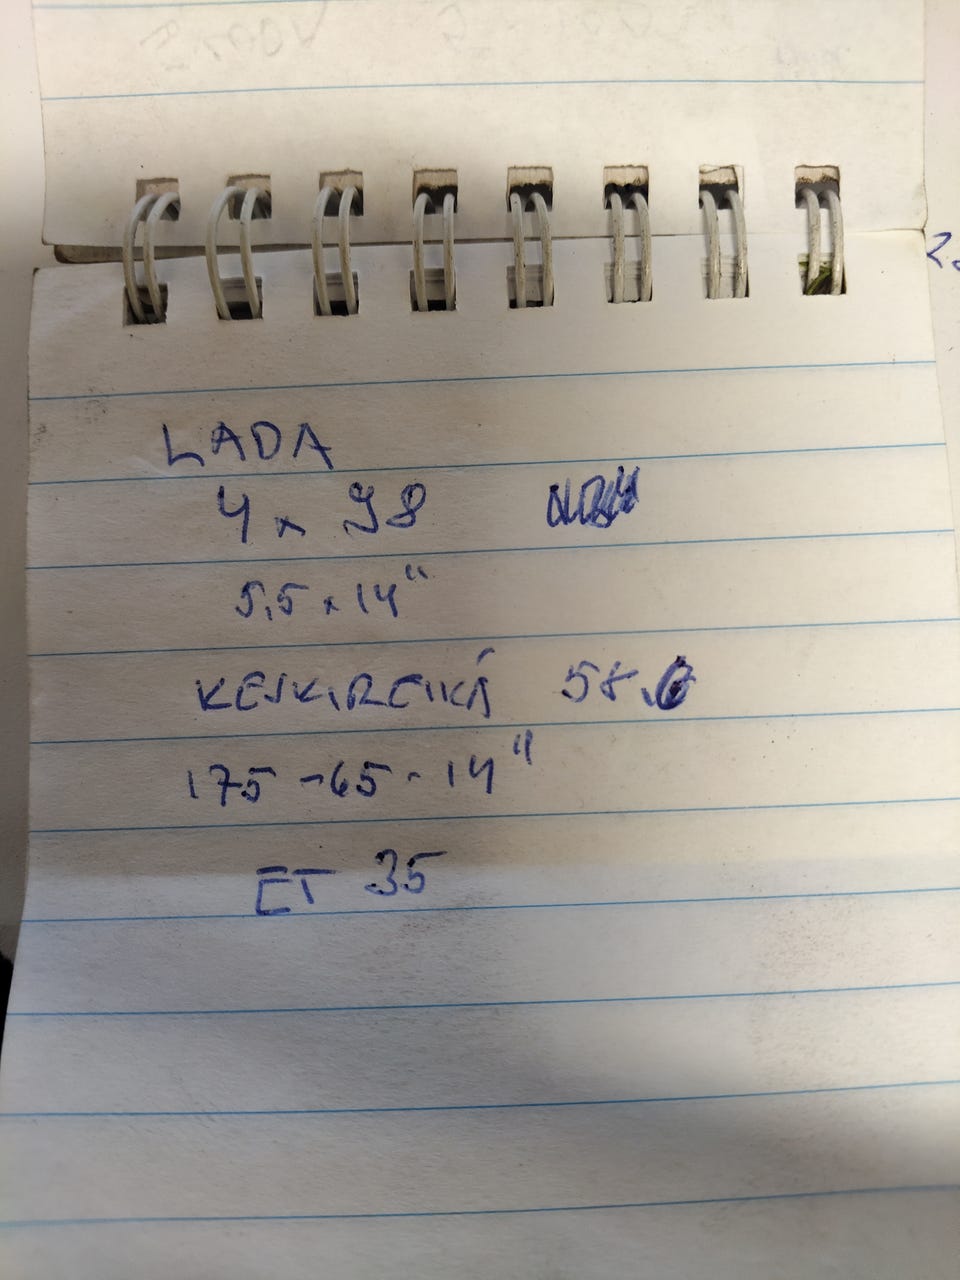 LADA
4 x 98
5,5 x 14"
KESKIREIKÄ 58.6
175-65-14"
ET 35